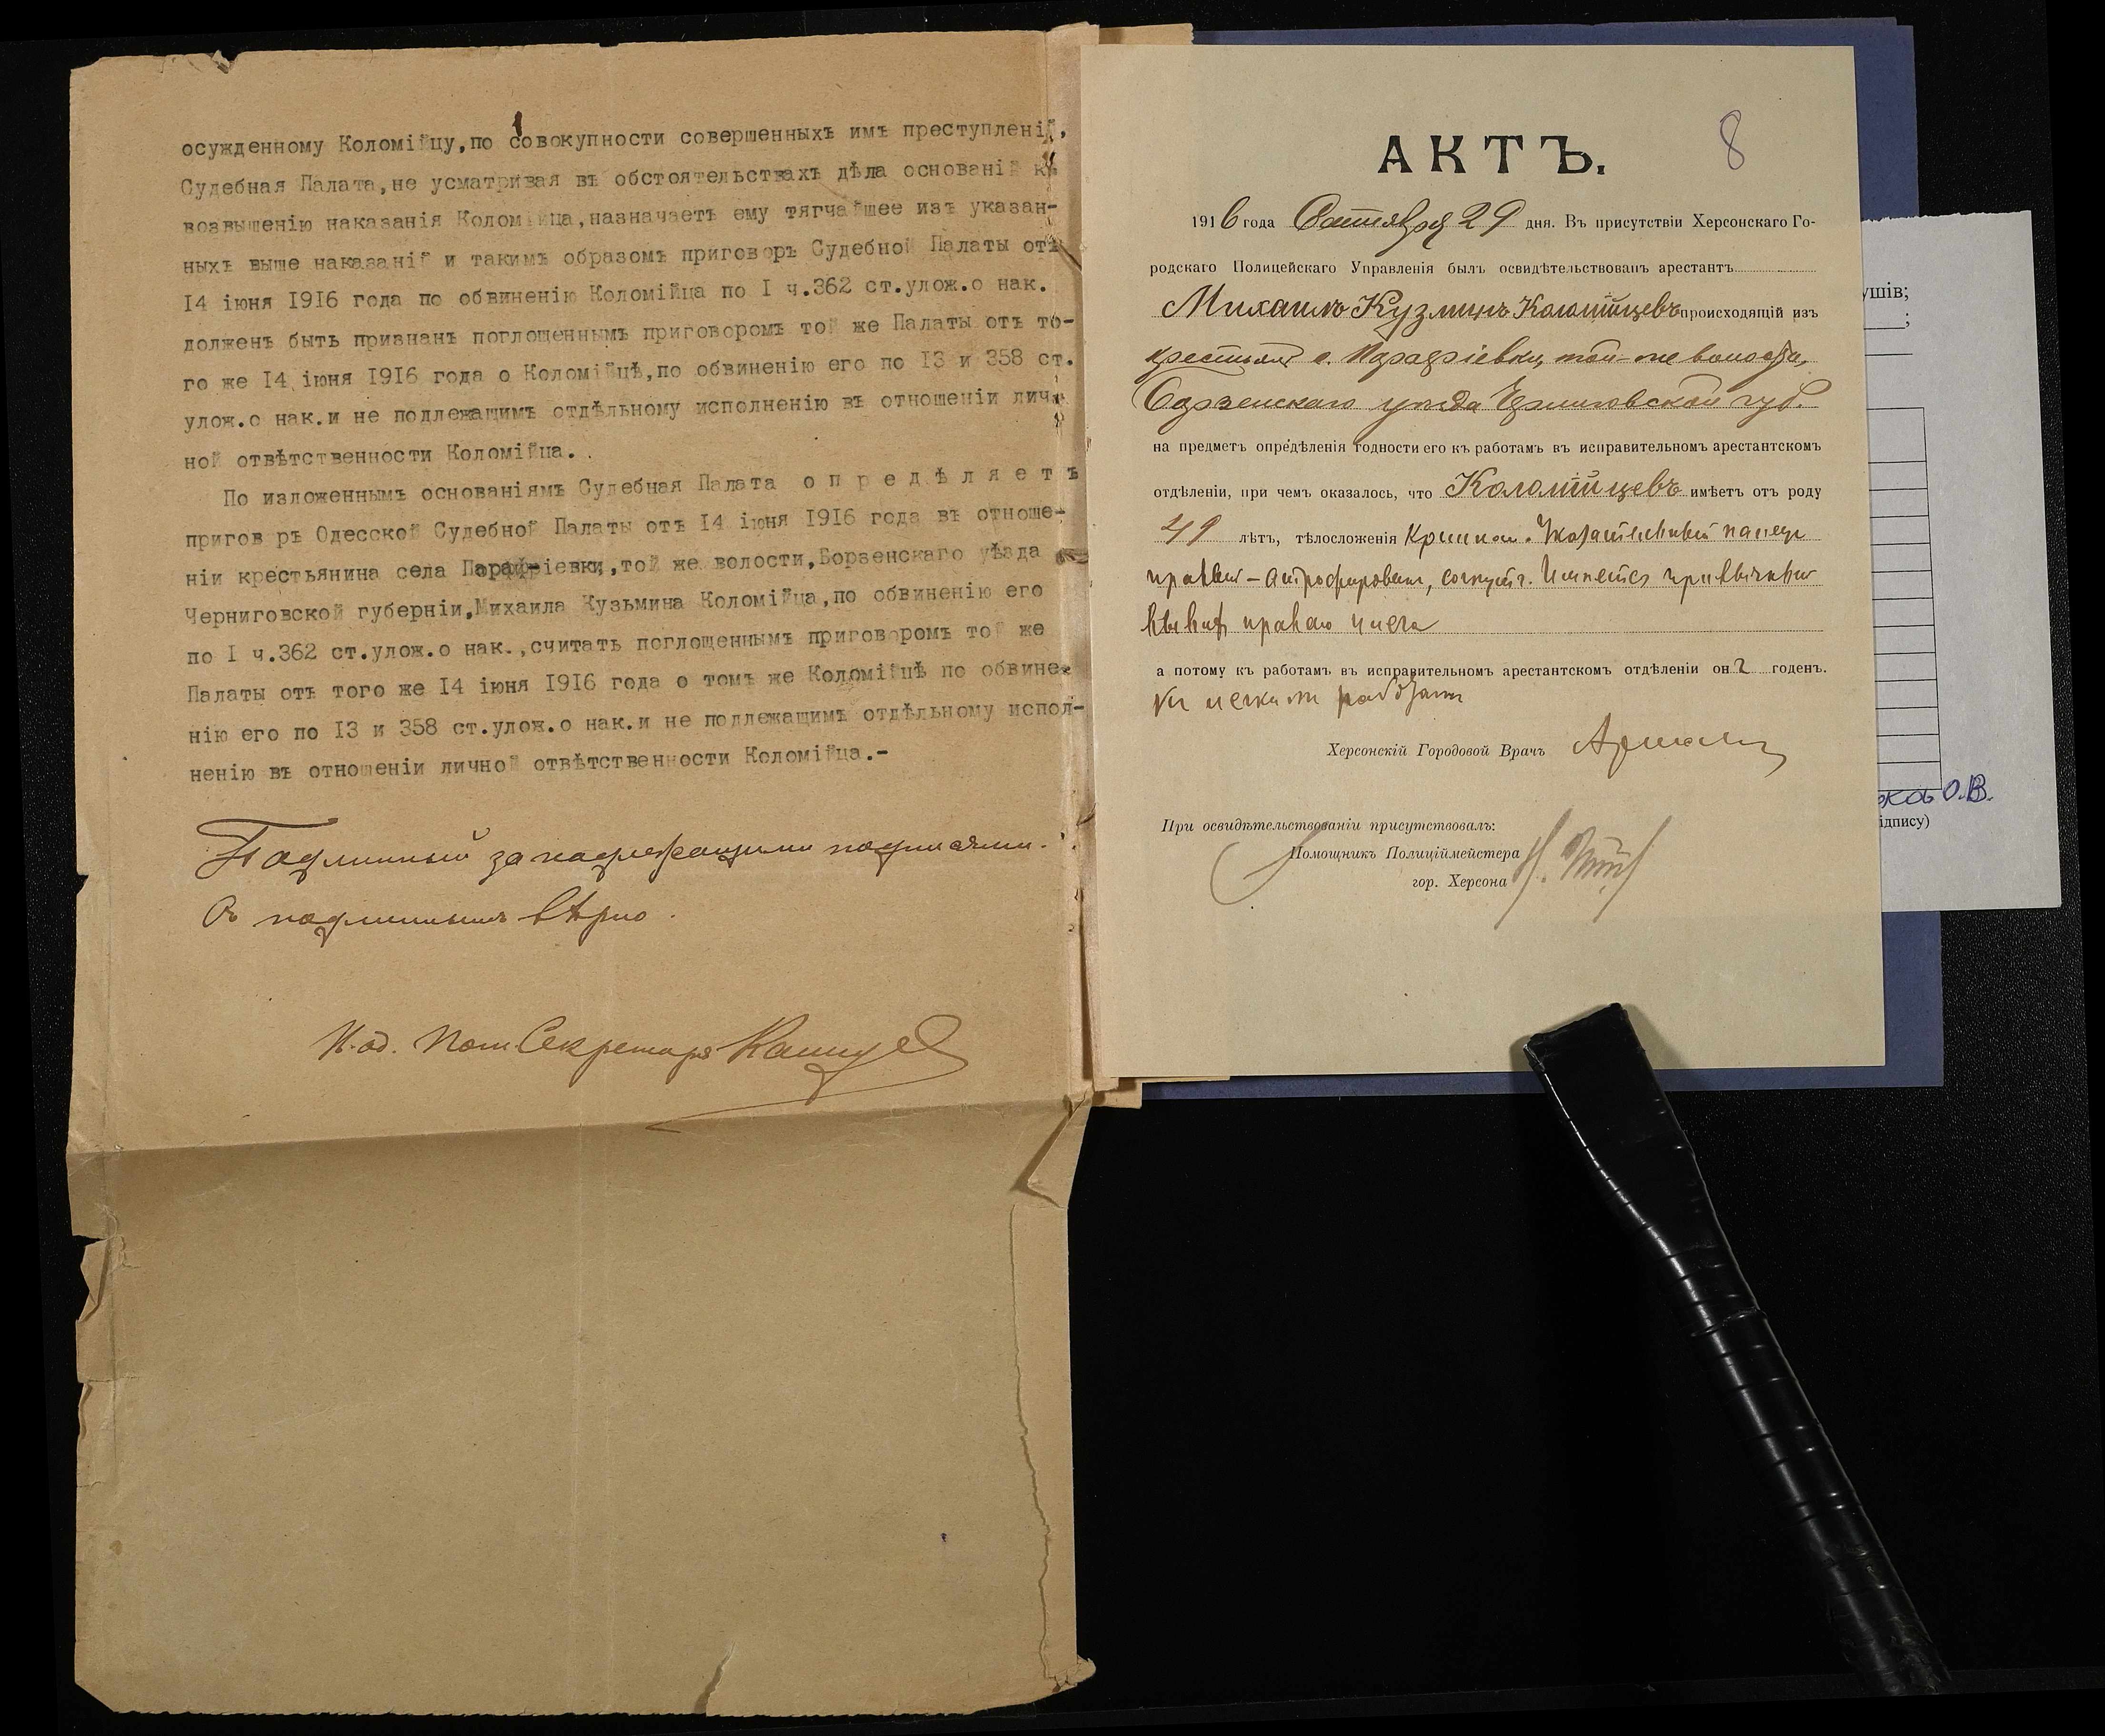 осужденному Коломійцу,по совокупности совершенныхъ имъ преступленій,
Судебная Палата,не усматривая въ обстоятельствахъ дѣла основаній къ
возвышенію наказанія Коломійца,назначаетъ ему тягчайшее изъ указан-
ныхъ выше наказаній и такимъ образомъ приговоръ Судебной Палаты отъ
14 іюня 1916 года по обвиненію Коломійца по I ч.362 ст.улож.о нак.
долженъ быть признан поглощеннымъ приговоромъ той же Палаты отъ то-
го же 14 іюня 1916 года о Коломійцѣ,по обвиненію его по 13 и 358 ст.
улож.о нак.и не подлежащимъ отдѣльному исполненію въ отношеніи лич-
ной отвѣтственности Коломійца.
По изложеннымъ основаніямъ Судебная Палата о п р е д ѣ л я е т ъ
пригов ръ Одесской Судебной Палаты отъ 14 іюня 1916 года въ отноше-
ніи крестьянина села Парафіевки,той же волости,Борзенскаго уѣзда
Черниговской губерніи,Михаила Кузьмина Коломійца,по обвиненію его
по I ч.362 ст.улож.о нак.,считать поглощеннымъ приговоромъ той же
Палаты отъ того же 14 іюня 1916 года о томъ же Коломійцѣ по обвине-
нію его по 13 и 358 ст.улож.о нак.и не подлежащимъ отдѣльному испол-
ненію въ отношеніи личной отвѣтственности Коломійца.-
Подлинный за надлежащими подписями.
Съ подлиннымъ вѣрно.
И.об. Пом. Секретаря
8
АКТЪ.
1916 года Сентября 29 дня. Въ присутствіи Херсонскаго Го-
родскаго Полицейскаго Управленія былъ освидѣтельствованъ арестантъ
Михаилъ Кузминъ Коломійцевъ происходящій изъ
крестьян с. Парафіевки, той-же волости,
Борзенскаго уѣзда Черниговской губ.
на предметъ опредѣленія годности его къ работамъ въ исправительномъ арестантскомъ
отдѣленіи, при чемъ оказалось, что Коломійцевъ имѣетъ отъ роду
49 лѣтъ, тѣлосложенія Указательный палец
правый - атрофирован, согнут. Имеется привычный
вывих правого плеча
а потому къ работамъ въ исправительномъ арестантскомъ отдѣленіи онъ годенъ.
къ легким работам
Херсонскій Городовой Врачъ
При освидѣтельствованіи присутствовалъ:
Помощникъ Полиціймейстера
гор. Херсона
ушів;
;
О.В.
ідпису)